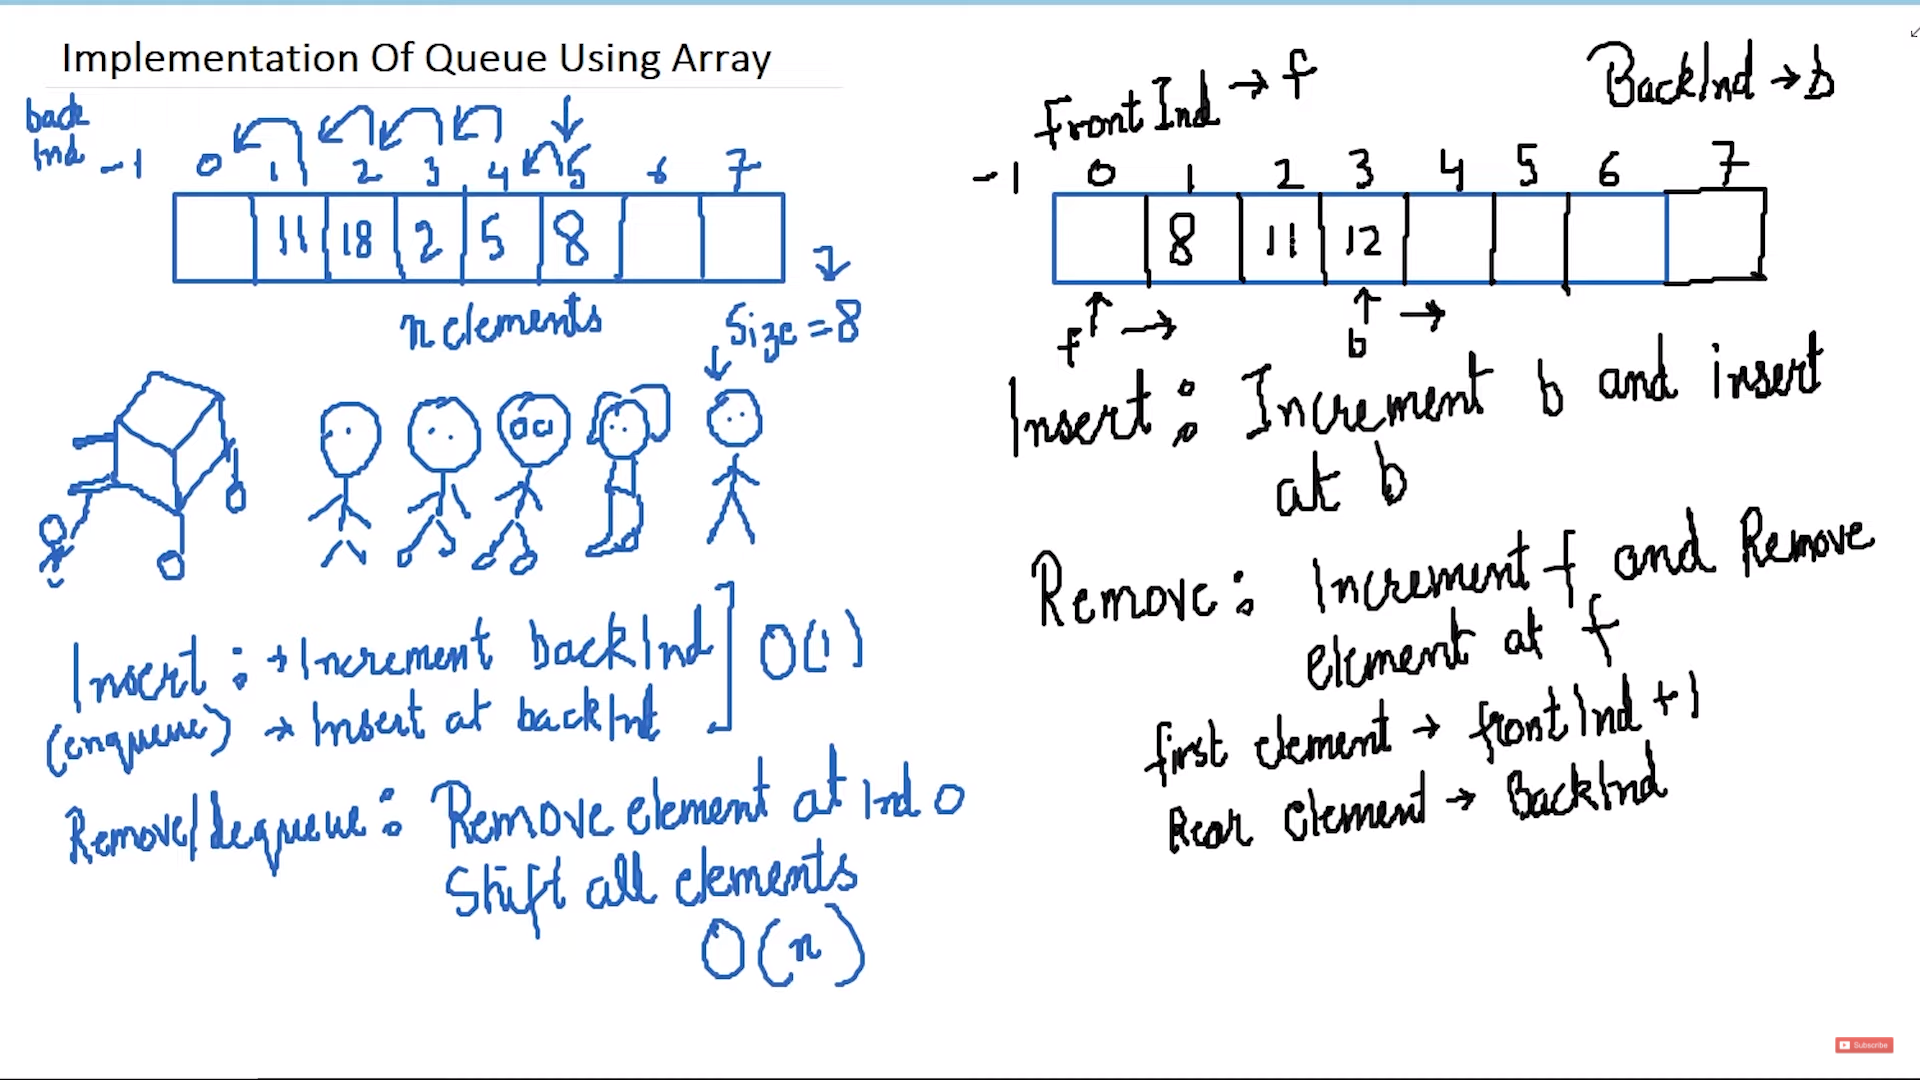 Implementation Of Queue Using Array
back
Ind
-1 0 1 2 3 4 5 6 7
11 18 2 5 8
n elements
Size = 8
Insert : → Increment backInd ] O(1)
(enqueue) → Insert at backInd
Remove/dequeue : Remove element at Ind 0
Shift all elements
O(n)
FrontInd → f
BackInd → b
-1 0 1 2 3 4 5 6 7
8 11 12
f → b →
Insert : Increment b and insert
at b
Remove : Increment f and Remove
element at f
first element → frontInd + 1
Rear element → BackInd
Subscribe